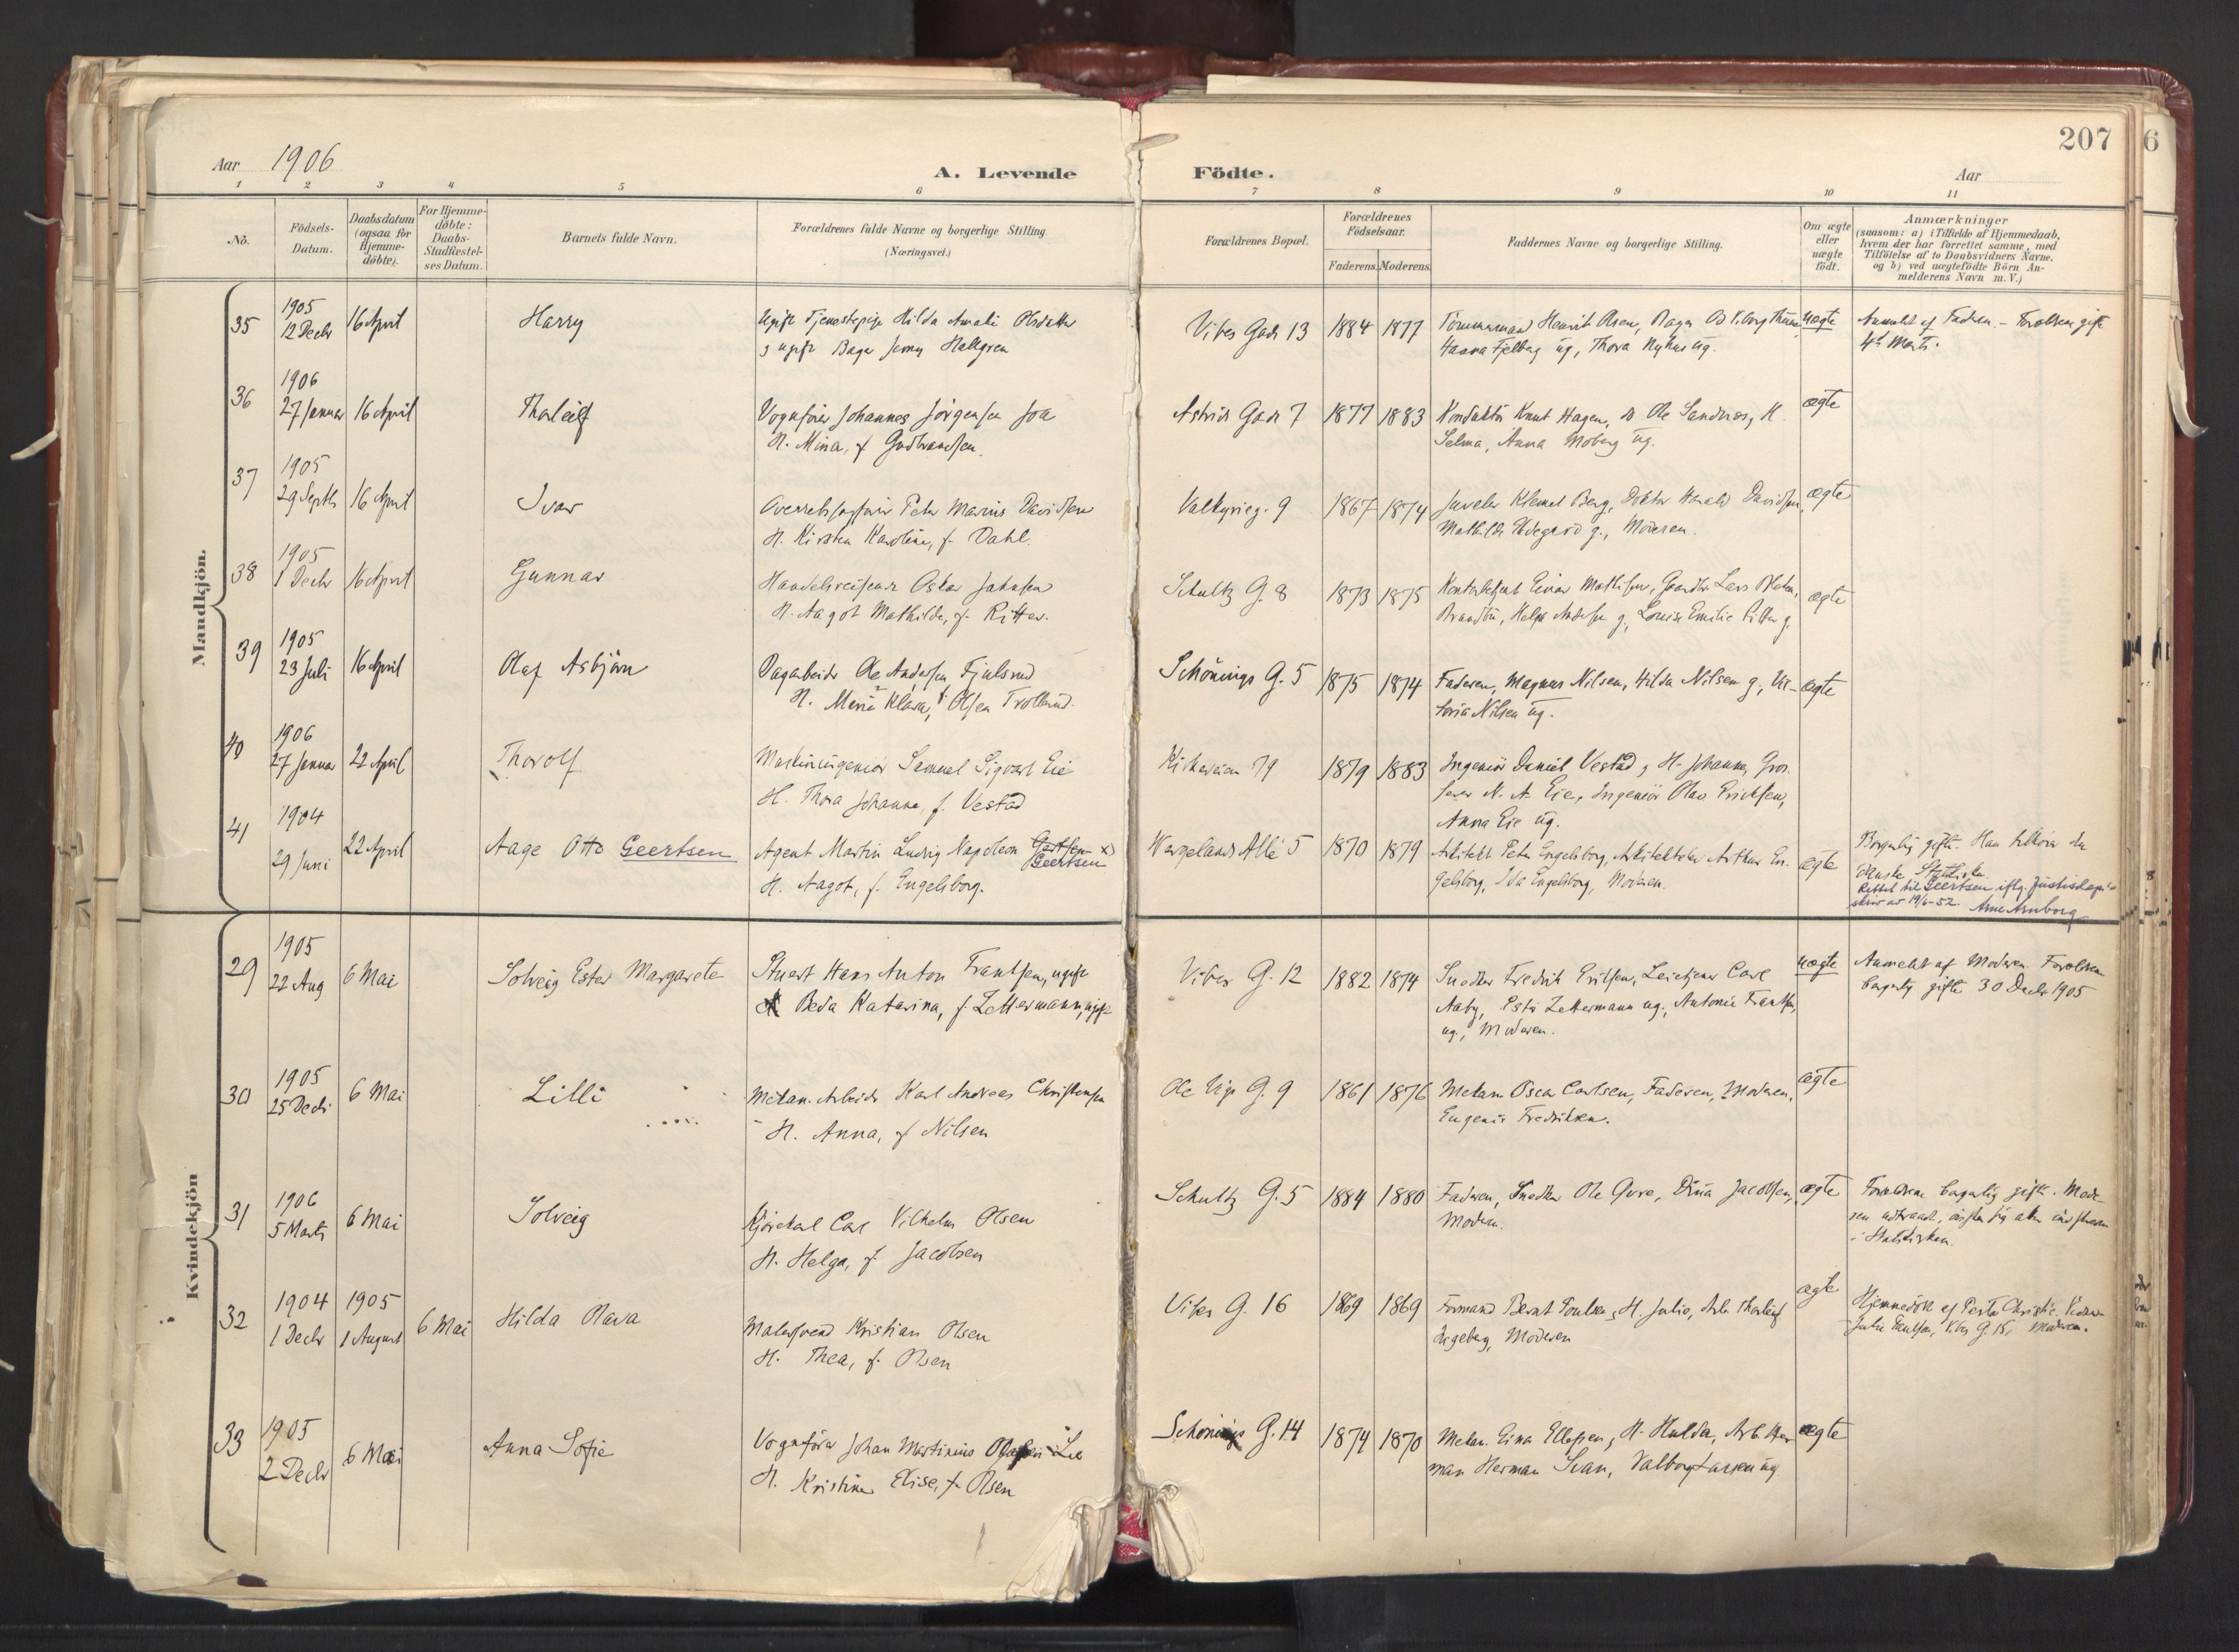 207 6
Aar 1906 A. Levende Födte. Aar
1 2 3 4 5 6 7 8 9 10 11
No. Födsels-Datum. Daabsdatum (ogsaa for Hjemmedöbte). For Hjemmedöbte: Daabs-Stadfæstelses Datum. Barnets fulde Navn. Forældrenes fulde Navne og borgerlige Stilling. (Næringsvei.) Forældrenes Bopæl. Forældrenes Födselsaar. Faderens. Moderens. Faddernes Navne og borgerlige Stilling. Om ægte eller uægte födt. Anmærkninger (saasom: a) i Tilfælde af Hjemmedaab, hvem der har forrettet samme, med Tilföielse af to Daabsvidners Navne. og b) ved uægtefödte Börn Anmelderens Navn m. V.)
Mandkjön.
35 1905 12 Decbr 16 April Harry Ugift Tjenestepige Hilda Amalie Olsdatter Vibes Gade 13 1884 1877 Tömmermand Henrik Olsen, uægte Anmeldt af Faderen. - Forældrene gift
ugift Bager Hellgren Hanna Fjelberg ug., Thora Nyhus ug. 4de Marts.
36 1906 27 Januar 16 April Thorleif Vognfører Johannes Jörgensen Astrids Gade 7 1877 1883 Konduktör Knut Hagen, Ole Sandnes, H. ægte
H. Mina, f. Gudbrandsen. Selma, Anna Moberg ug.
37 1905 29 Septbr 16 April Ivar Peter Marius Davidsen Valkyrieg. 9 1867 1874 Juveler Klemet Berg, Doktor Harald Davidsen, ægte
H. Kirsten Karoline, f. Dahl. Mathilde g., Moderen.
38 1905 1 Decbr 16 April Gunnar Handelsreisende Oskar Johnsen Schultz G. 8 1873 1875 Kontorbetjent Einar Mathisen, Lars ægte
H. Aagot Mathilde, f. Ritter. Helga Andersen g., Louise Emilie Ritter g.
39 1905 23 Juli 16 April Olaf Asbjörn Dagarbeider Ole Andersen Fjulsrud Schönings G. 5 1875 1874 Faderen, Magnus Nilsen, Hilda Nilsen g., Vik- ægte
H. Marie Klara, f. Olsen Trollerud. toria Nilsen ug.
40 1906 27 Januar 22 April Thorolf Maskiningeniör Samuel Sigvart Eie Kirkeveien 79 1879 1883 Ingeniör Daniel Vestad, H. Johanna, Gros-
H. Thora Johanne, f. Vestad N. A. Eie, Ingeniör Olav Erichsen,
Anna Eie ug.
41 1904 29 Juni 22 April Aage Otto Geertsen Agent Martin Ludvig Napoleon Geertsen Wergelands Allé 5 1870 1879 Arkitekt Peter Engelsborg, Arkitekt Arthur En- ægte Borgerlig gifte. Han tilhörer den
H. Aagot, f. Engelsborg. gelsborg, Ida Engelsborg, Moderen. danske Statskirke.
Rettet til Geertsen iflg. Justisdep.s
skriv av 19/6-52. Arne Arnborg
Kvindekjön
29 1905 22 Aug 6 Mai Solveig Ester Margarete Stuert Hans Anton Frantsen, ugift Vibes G. 12 1882 1874 Snedker Fredrik Eriksen, Carl uægte Anmeldt af Moderen. Forældrene
Beda Katarina, f. Zettermann, ugift Aaby, Ester Zettermann ug., Antonie Frantsen, borgerlig gifte 30 Decbr 1905
ug., Moderen.
30 1905 25 Decbr 6 Mai Lilli Mekan. Arbeider Karl Andreas Christensen Ole Vigs G. 9 1861 1876 Mekan Oscar Carlsen, Faderen, Moderen, ægte
H. Anna, f. Nilsen Eugenie Fredriksen.
31 1906 5 Marts 6 Mai Solveig Kjörekarl Carl Vilhelm Olsen Schultz G. 5 1884 1880 Faderen, Snedker Ole Gure, Dina Jacobsen, ægte Forældrene borgerlig gifte. Mode-
H. Helga, f. Jacobsen Moderen. ren udtraadt, önsker sig atter indskreven
i Statskirken.
32 1904 1 Decbr 1905 1 August 6 Mai Hilda Olava Malersvend Kristian Olsen Vibes G. 16 1869 1869 Formand Bernt Poulsen, H. Julie, Arb. Thorleif ægte Hjemmedöbt af Pastor Christie.
H. Thea, f. Olsen Ingeborg, Moderen Julie Paulsen, Vibes G. 15, Moderen.
33 1905 2 Decbr 6 Mai Anna Sofie Vognfører Johan Martinius Lie Schönings G. 14 1874 1870 Mekan. Einar Ellefsen, H. Hulda, Arb. Her- ægte
H. Kristine Elise, f. Olsen man Herman Svan, Valborg Larsen ug.